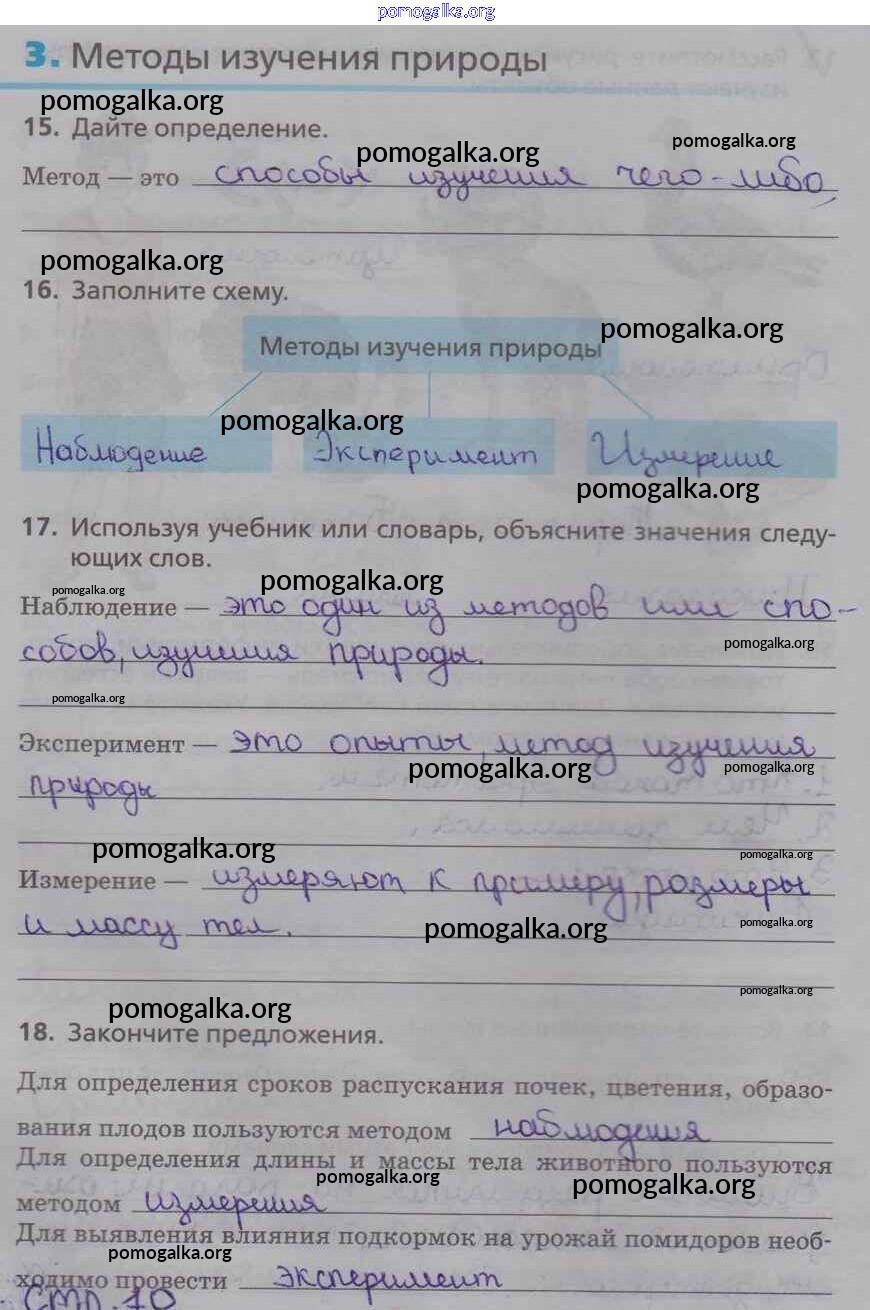 pomogalka.org
3. Методы изучения природы
pomogalka.org
15. Дайте определение.
pomogalka.org
pomogalka.org
Метод — это способы изучения чего-либо
pomogalka.org
16. Заполните схему.
pomogalka.org
Методы изучения природы
pomogalka.org
Наблюдение Эксперимент Измерение
pomogalka.org
17. Используя учебник или словарь, объясните значения следу-
ющих слов.
pomogalka.org
pomogalka.org
Наблюдение — это один из методов или спо-
собов, изучения природы.
pomogalka.org
pomogalka.org
Эксперимент — это опыты, метод изучения
pomogalka.org
pomogalka.org
природы
pomogalka.org
pomogalka.org
Измерение — измеряют к примеру, размеры
и массу тел.
pomogalka.org
pomogalka.org
pomogalka.org
pomogalka.org
18. Закончите предложения.
Для определения сроков распускания почек, цветения, образо-
вания плодов пользуются методом наблюдения
Для определения длины и массы тела животного пользуются
pomogalka.org
pomogalka.org
методом измерения
Для выявления влияния подкормок на урожай помидоров необ-
pomogalka.org
ходимо провести эксперимент
стр. 10